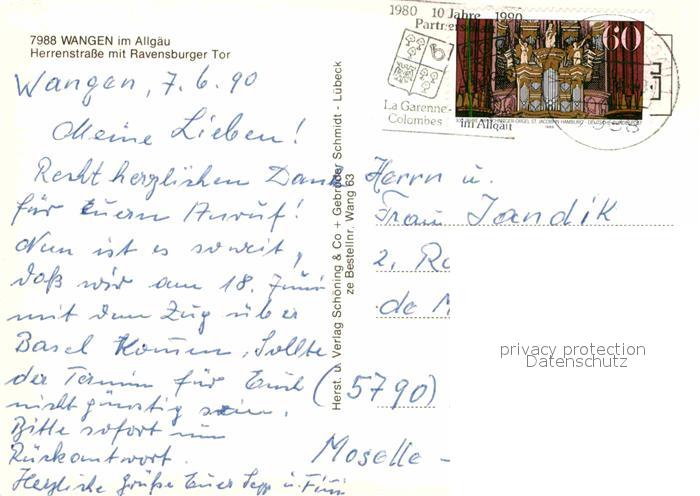 7988 WANGEN im Allgäu
Herrenstraße mit Ravensburger Tor
Wangen, 7. 6. 90
Meine Lieben!
Recht herzlichen Dank
für Euern Anruf!
Nun ist es soweit,
daß wir am 18. Juni
mit dem Zug über
Basel kommen. Sollte
der Termin für Euch
nicht günstig sein.
Bitte sofort um
Rückantwort.
Herzliche Grüße Euer Sepp u.
Herst. u. Verlag Schöning & Co + Gebrüder Schmidt - Lübeck
ze Bestellnr. Wang 63
1980 10 Jahre 1990
La Garenne-
Colombes
im Allgäu
60
Herrn u.
Frau Jandik
2, Ro
de M
(5790)
Moselle -
privacy protection
Datenschutz